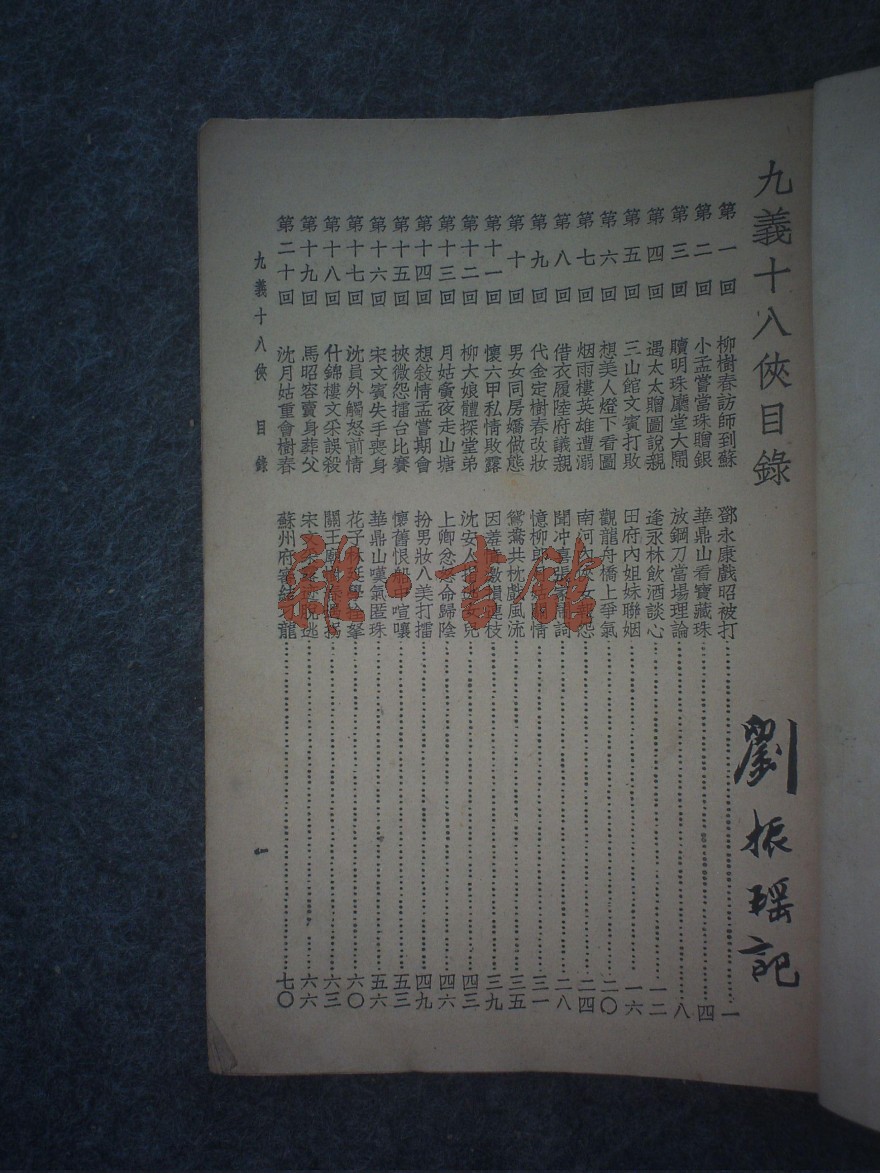 九義十八俠目錄
劉振瑶記
第一回 柳樹春訪師到蘇 鄧永康戲昭被打 一
第二回 小孟嘗當珠贈銀 華鼎山看寶藏珠 四
第三回 贖明珠廳堂大鬧 放鋼刀當場理論 八
第四回 遇太太贈圖說親 逢永林飲酒談心 一二
第五回 三山館文賓打敗 田府內姐妹聯姻 一六
第六回 想美人燈下看圖 觀龍舟橋上爭氣 二〇
第七回 烟雨樓英雄遭溺 南河內俠女 怨 二四
第八回 借衣履陸府議親 聞冲喜 詞 二八
第九回 代金定樹春改妝 憶柳郎 情 三一
第十回 男女同房嬌做態 鴛鴦共枕戲風流 三五
第十一回 懷六甲私情敗露 因羞 連枝 三九
第十二回 柳大娘體探堂弟 沈安人 兇 四三
第十三回 月姑黌夜走山塘 上卿忿怒命歸陰 四六
第十四回 想敍情孟嘗期會 扮男妝八美打擂 四九
第十五回 挾微怨擂台比賽 懷舊恨船中喧嚷 五三
第十六回 宋文賓失手喪身 華鼎山嘆氣匿珠 五六
第十七回 沈員外觸怒前情 花子林 拳 六〇
第十八回 什錦樓文采誤殺 關王廟 拐 六三
第十九回 馬昭容賣身葬父 宋文 逃 六六
第二十回 沈月姑重會樹春 蘇州府 龍 七〇
九義十八俠 目錄 一
龍·書館